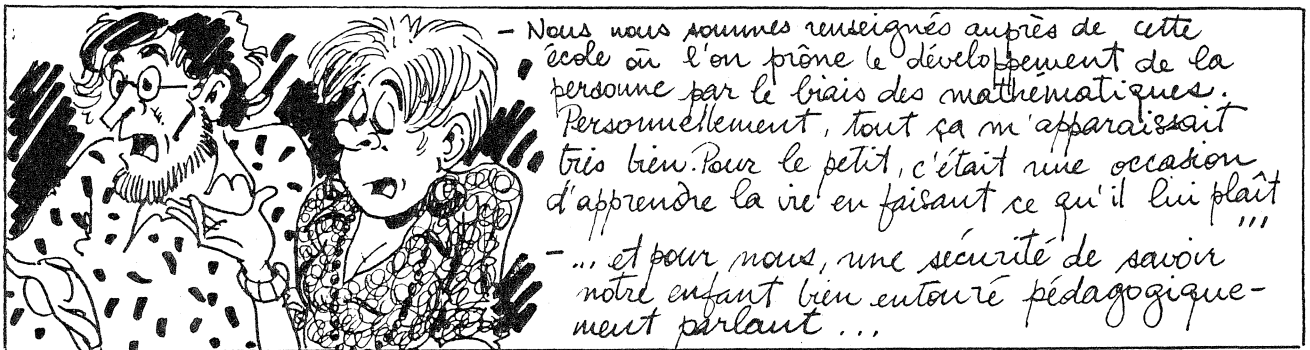 - Nous nous sommes renseignés auprès de cette
école où l'on prône le développement de la
personne par le biais des mathématiques.
Personnellement, tout ça m'apparaissait
très bien. Pour le petit, c'était une occasion
d'apprendre la vie en faisant ce qu'il lui plaît
...
- ... et pour nous, une sécurité de savoir
notre enfant bien entouré pédagogique-
ment parlant ...